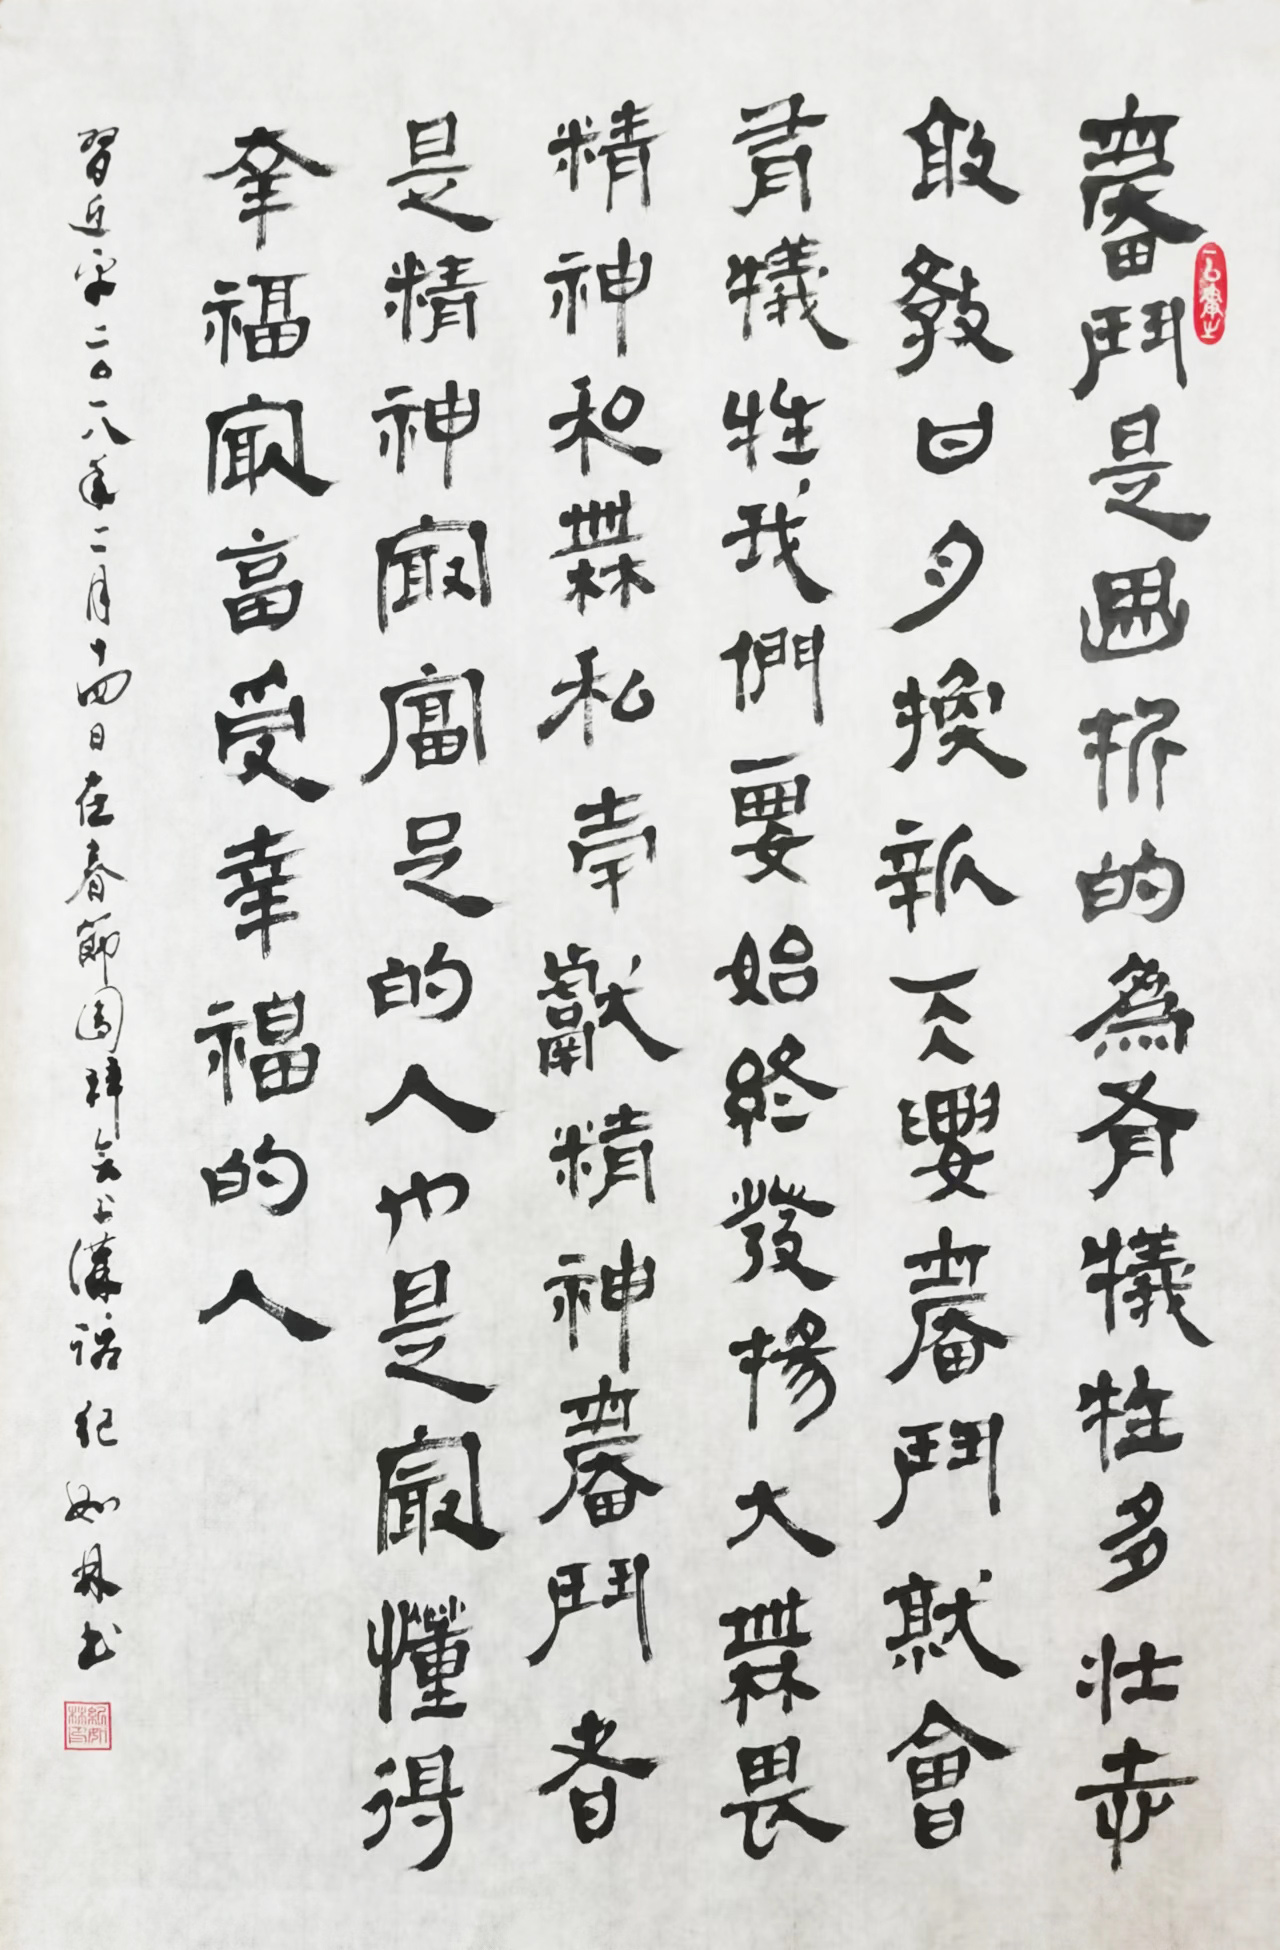 奮鬥是曲折的為有犧牲多壯志
敢教日月換新天要奮鬥就會
有犧牲我們要始終發揚大無畏
精神和無私奉獻精神奮鬥者
是精神最富足的人也是最懂得
幸福最享受幸福的人
習近平二〇一八年二月十四日在春節團拜會上講話紀如林书
紀如林印